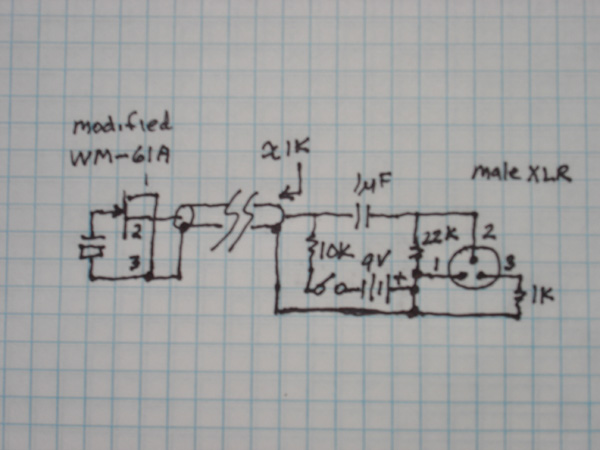 modified
WM-61A
≈1K
1µF
male XLR
1
2
3
10K
9V
+
22K
1
2
3
1K